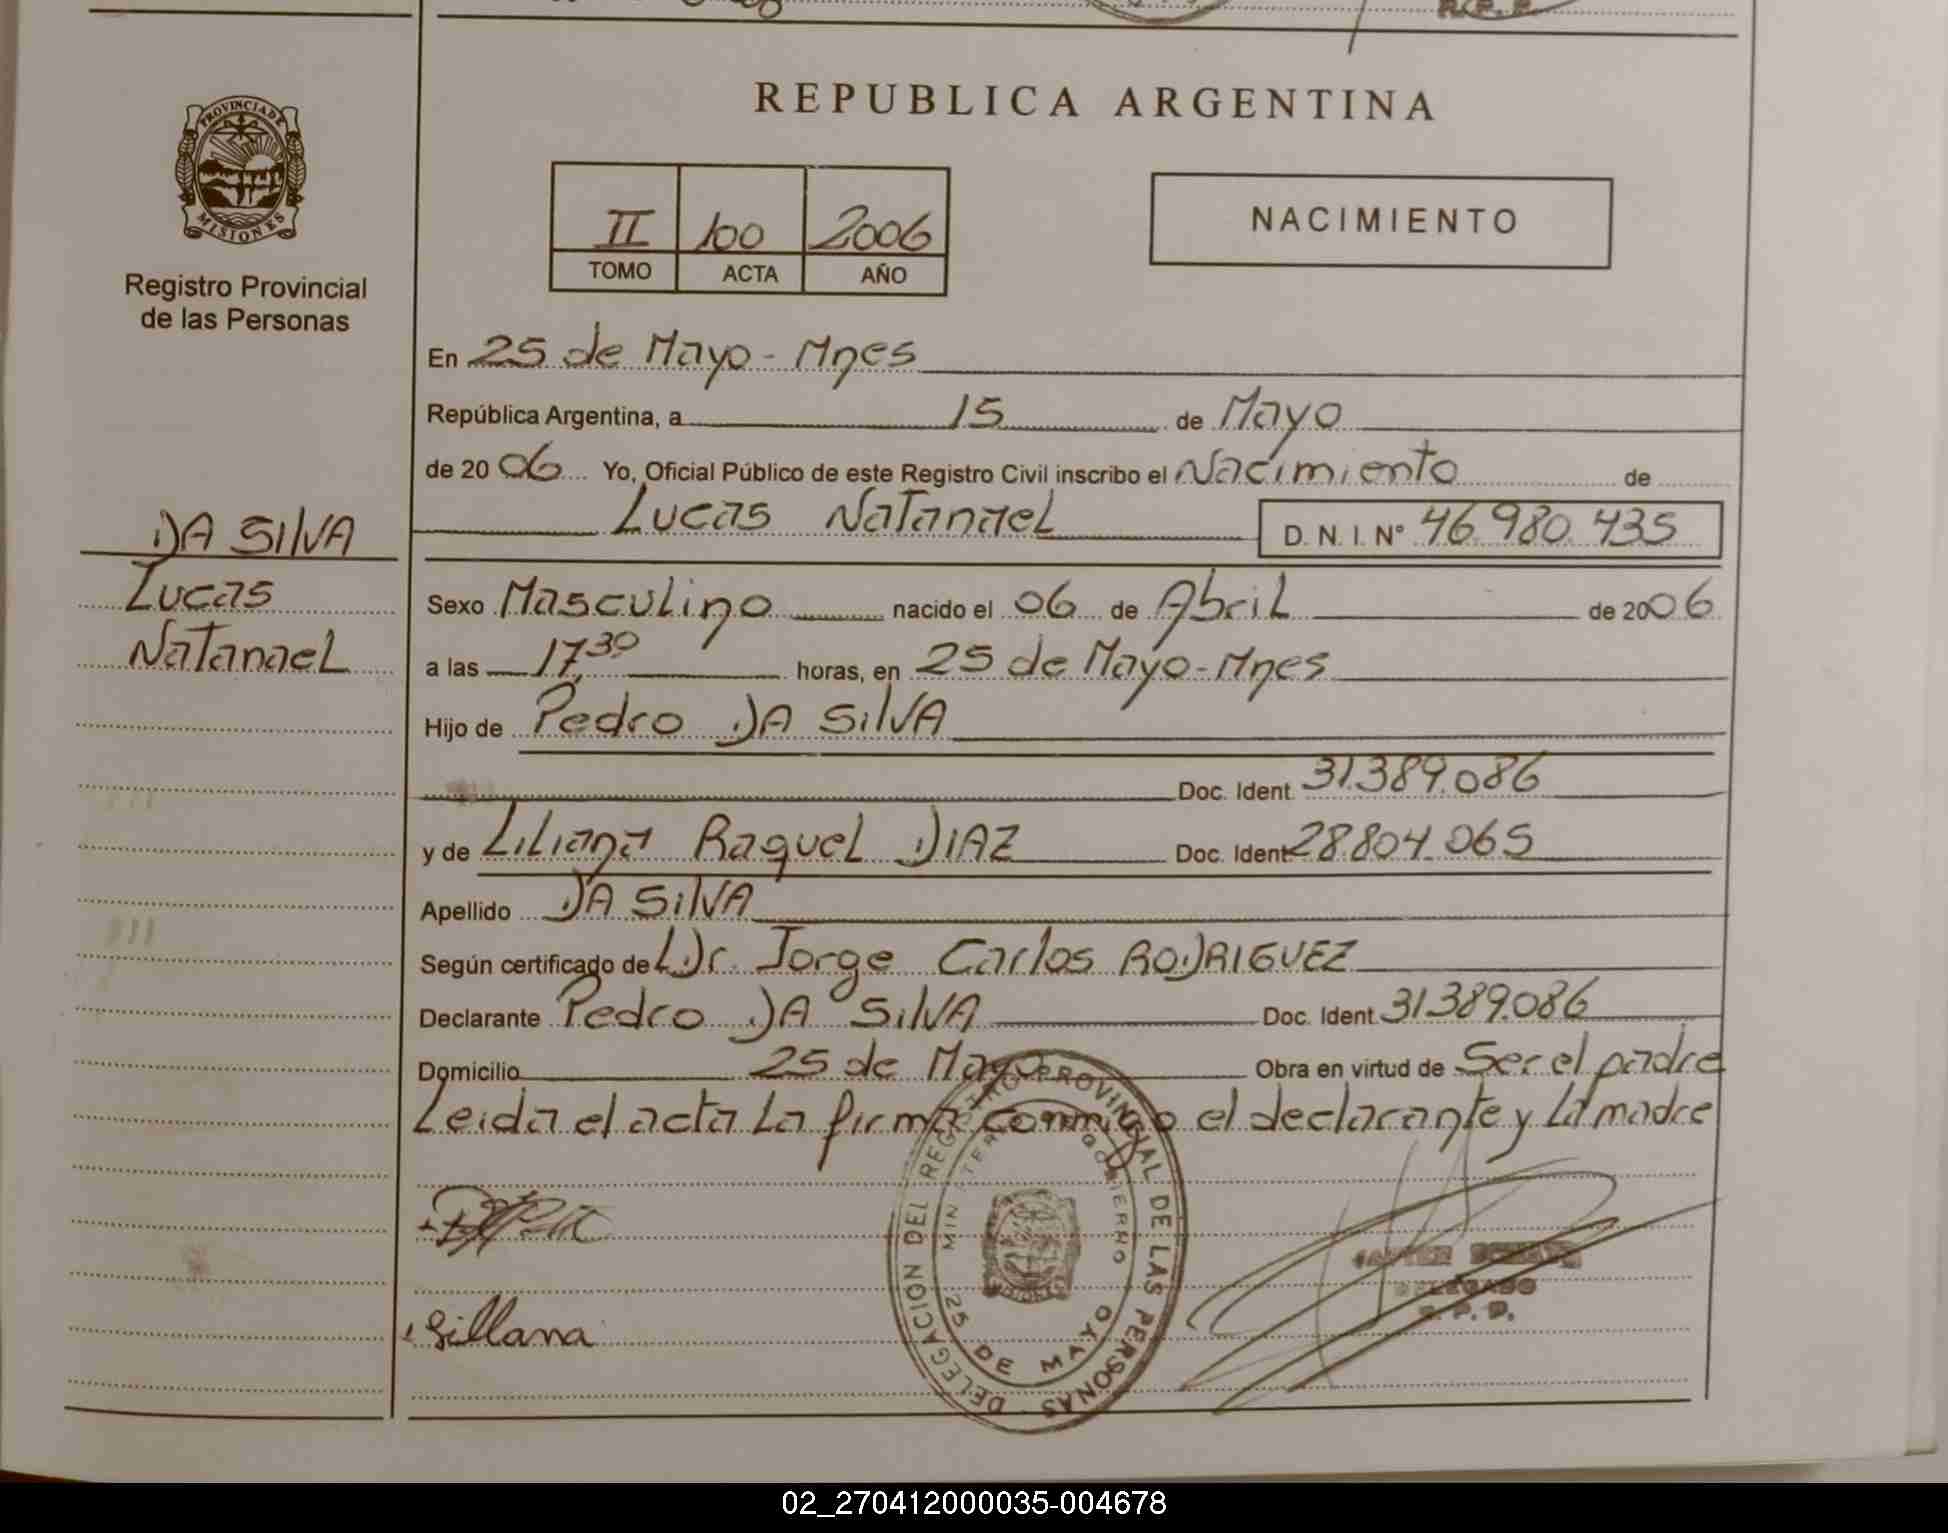 PROVINCIA DE
MISIONES
Registro Provincial
de las Personas
DA SILVA
Lucas
Natanael
R.P.P.
REPUBLICA ARGENTINA
II 100 2006
TOMO ACTA AÑO
NACIMIENTO
En 25 de Mayo - Mnes
República Argentina, a 15 de Mayo
de 2006 Yo, Oficial Público de este Registro Civil inscribo el Nacimiento de
Lucas Natanael D. N. I. Nº 46.980.435
Sexo Masculino nacido el 06 de Abril de 2006
a las 17,30 horas, en 25 de Mayo - Mnes
Hijo de Pedro DA SilVA
Doc. Ident. 31.389.086
y de Liliana Raquel DIAZ Doc. Ident. 28.804.065
Apellido DA SilVA
Según certificado de Dr. Jorge Carlos RODRIGUEZ
Declarante Pedro DA SilVA Doc. Ident. 31.389.086
Domicilio 25 de Mayo Obra en virtud de Ser el padre
Leida el acta la firma conmigo el declarante y la madre
DELEGACION DEL REGISTRO PROVINCIAL DE LAS PERSONAS
MINISTERIO DE GOBIERNO
25 DE MAYO
DELEGADO
R.P.P.
02_270412000035-004678